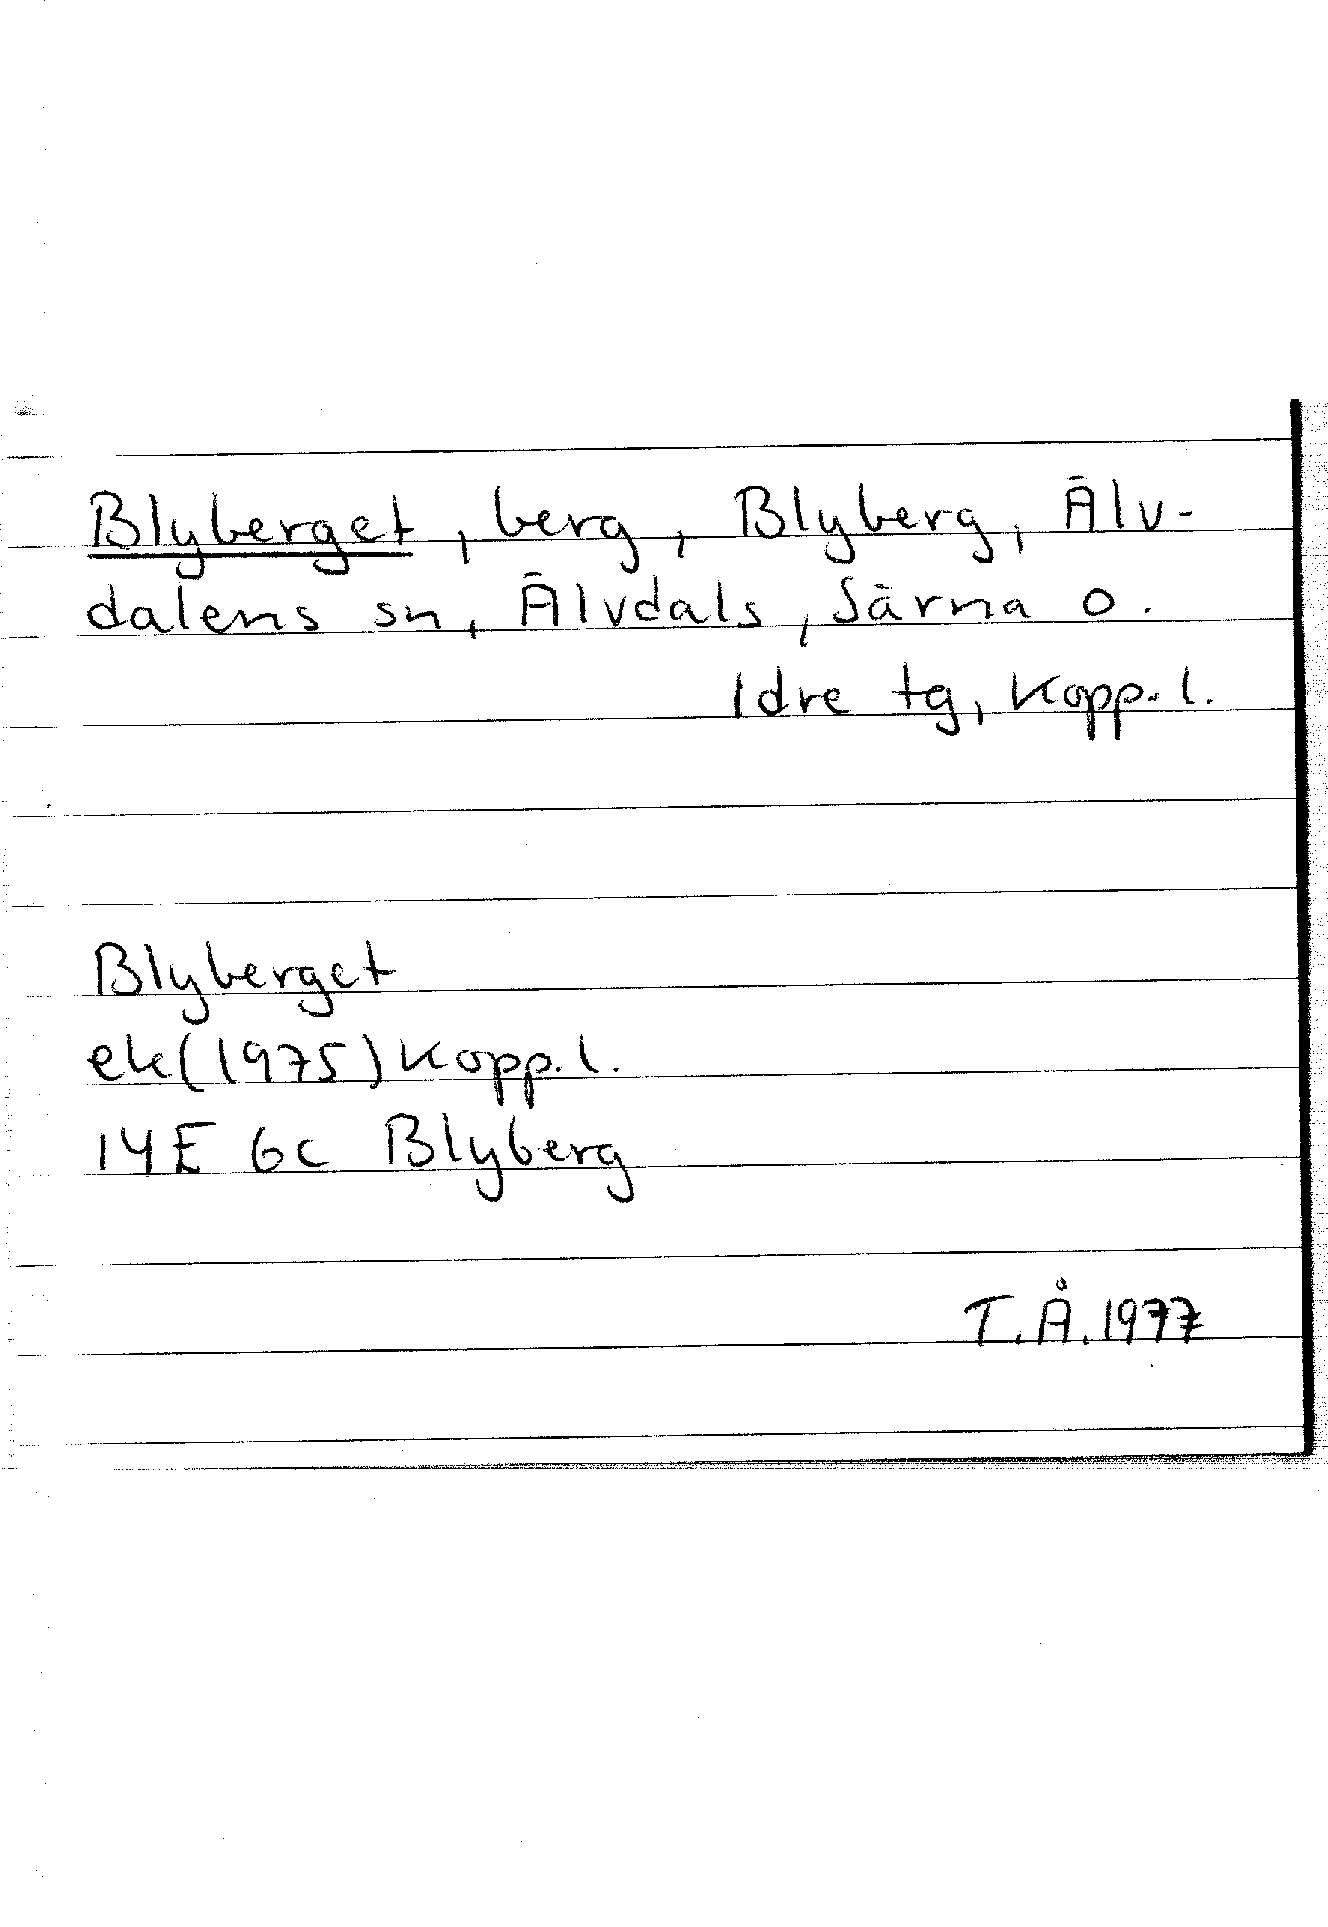 Blyberget, berg, Blyberg, Älv-
dalens sn, Älvdals, Särna o.
Idre tg, Kopp. l.
Blyberget
ek(1975) Kopp. l.
14E 6c Blyberg
T.Å.1977